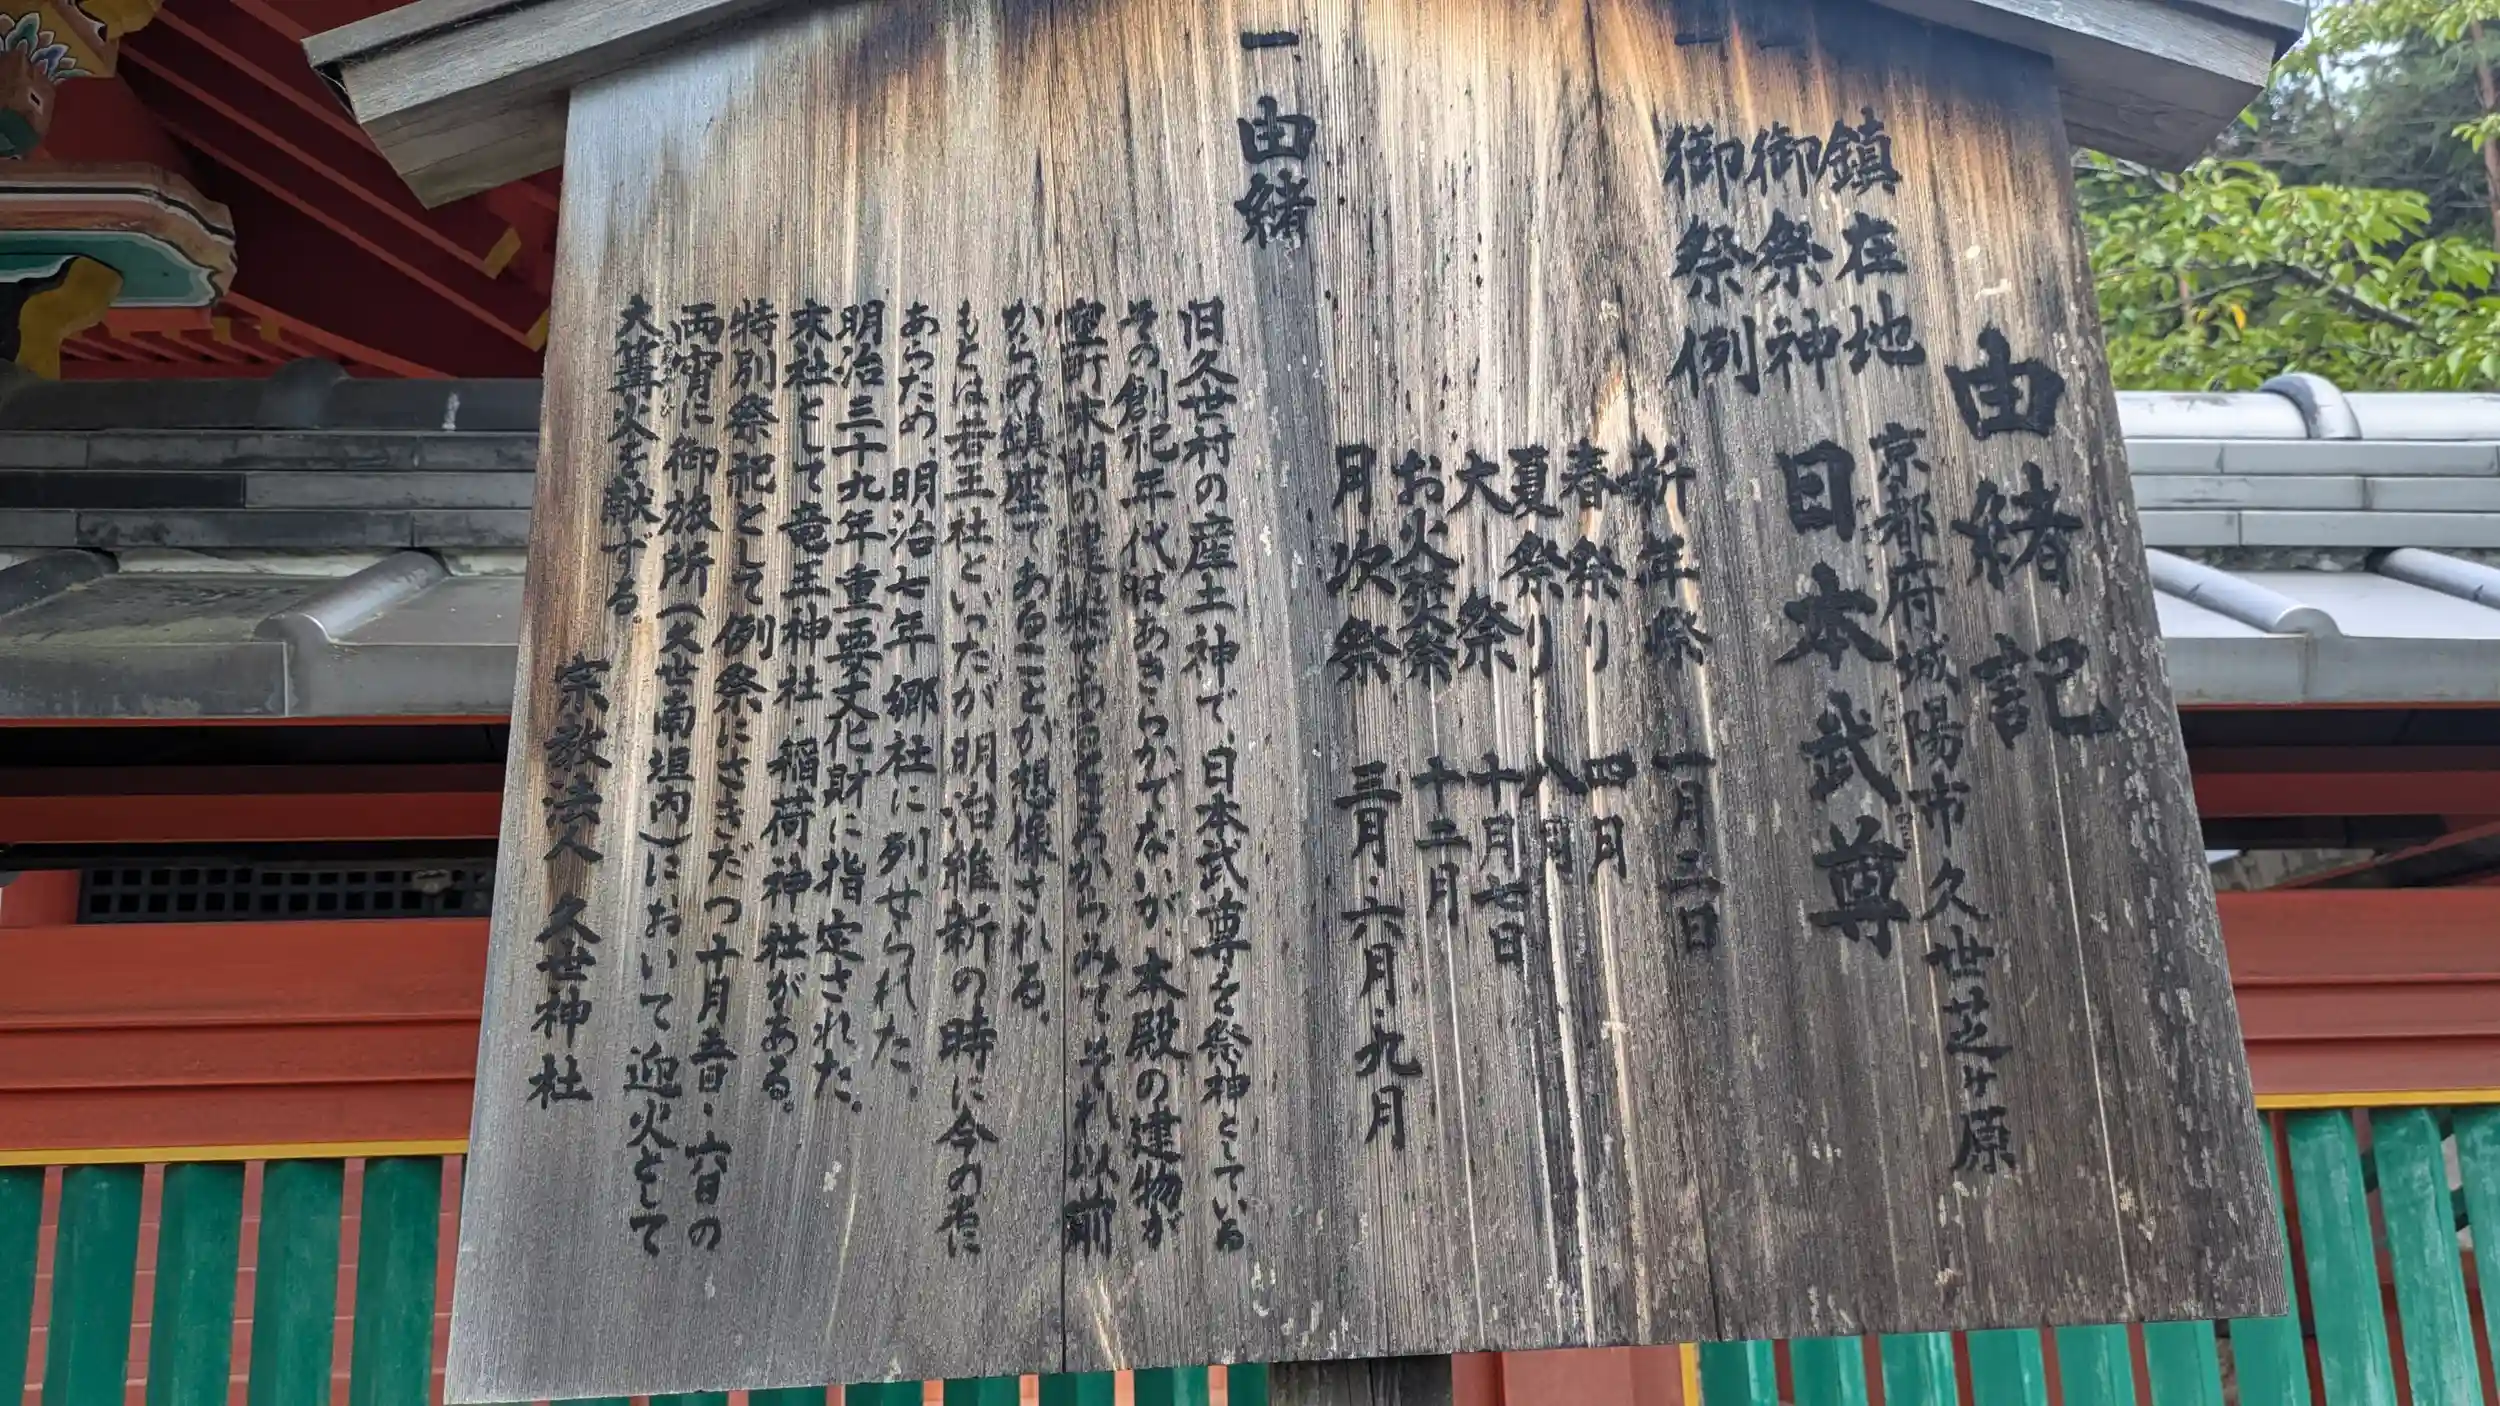 由緒記
鎮在地 京都府城陽市久世芝ケ原
一 御祭神 日本武尊
やまとたけるのみこと
一 御祭例
新年祭 一月三日
春祭り 四月
夏祭り 八月
大祭 十月七日
お火焚祭 十二月
月次祭 三月・六月・九月
一、由緒
旧久世村の産土神で、日本武尊を祭神としている
その創祀年代はあきらかでないが、本殿の建物が
室町末期の建築であるところからみてそれ以前
からの鎮座であることが想像される。
もとは若王社といったが明治維新の時に今の名に
あらため、明治七年郷社に列せられた。
明治三十九年重要文化財に指定された。
末社として竜王神社・稲荷神社がある。
特別祭祀として例祭にさきだつ十月五日・六日の
両宵に御旅所(久世南垣内)において迎火として
大篝火を献ずる。
宗教法人 久世神社